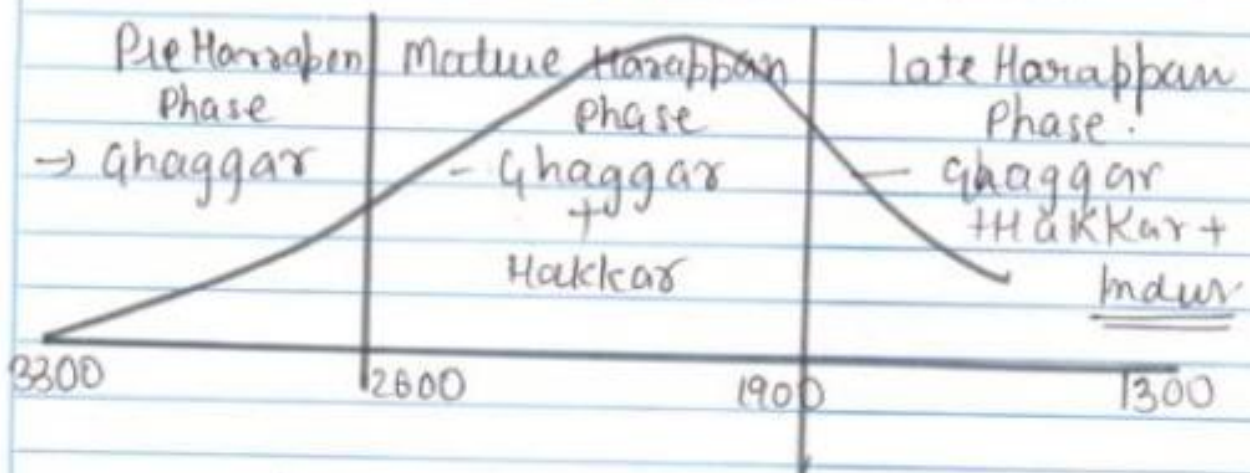 Pre Harrapen
Phase
→ Ghaggar
Mature Harappan
phase
- Ghaggar
+
Hakkar
late Harappan
Phase.
- Ghaggar
+Hakkar+
Indus
3300
2600
1900
1300